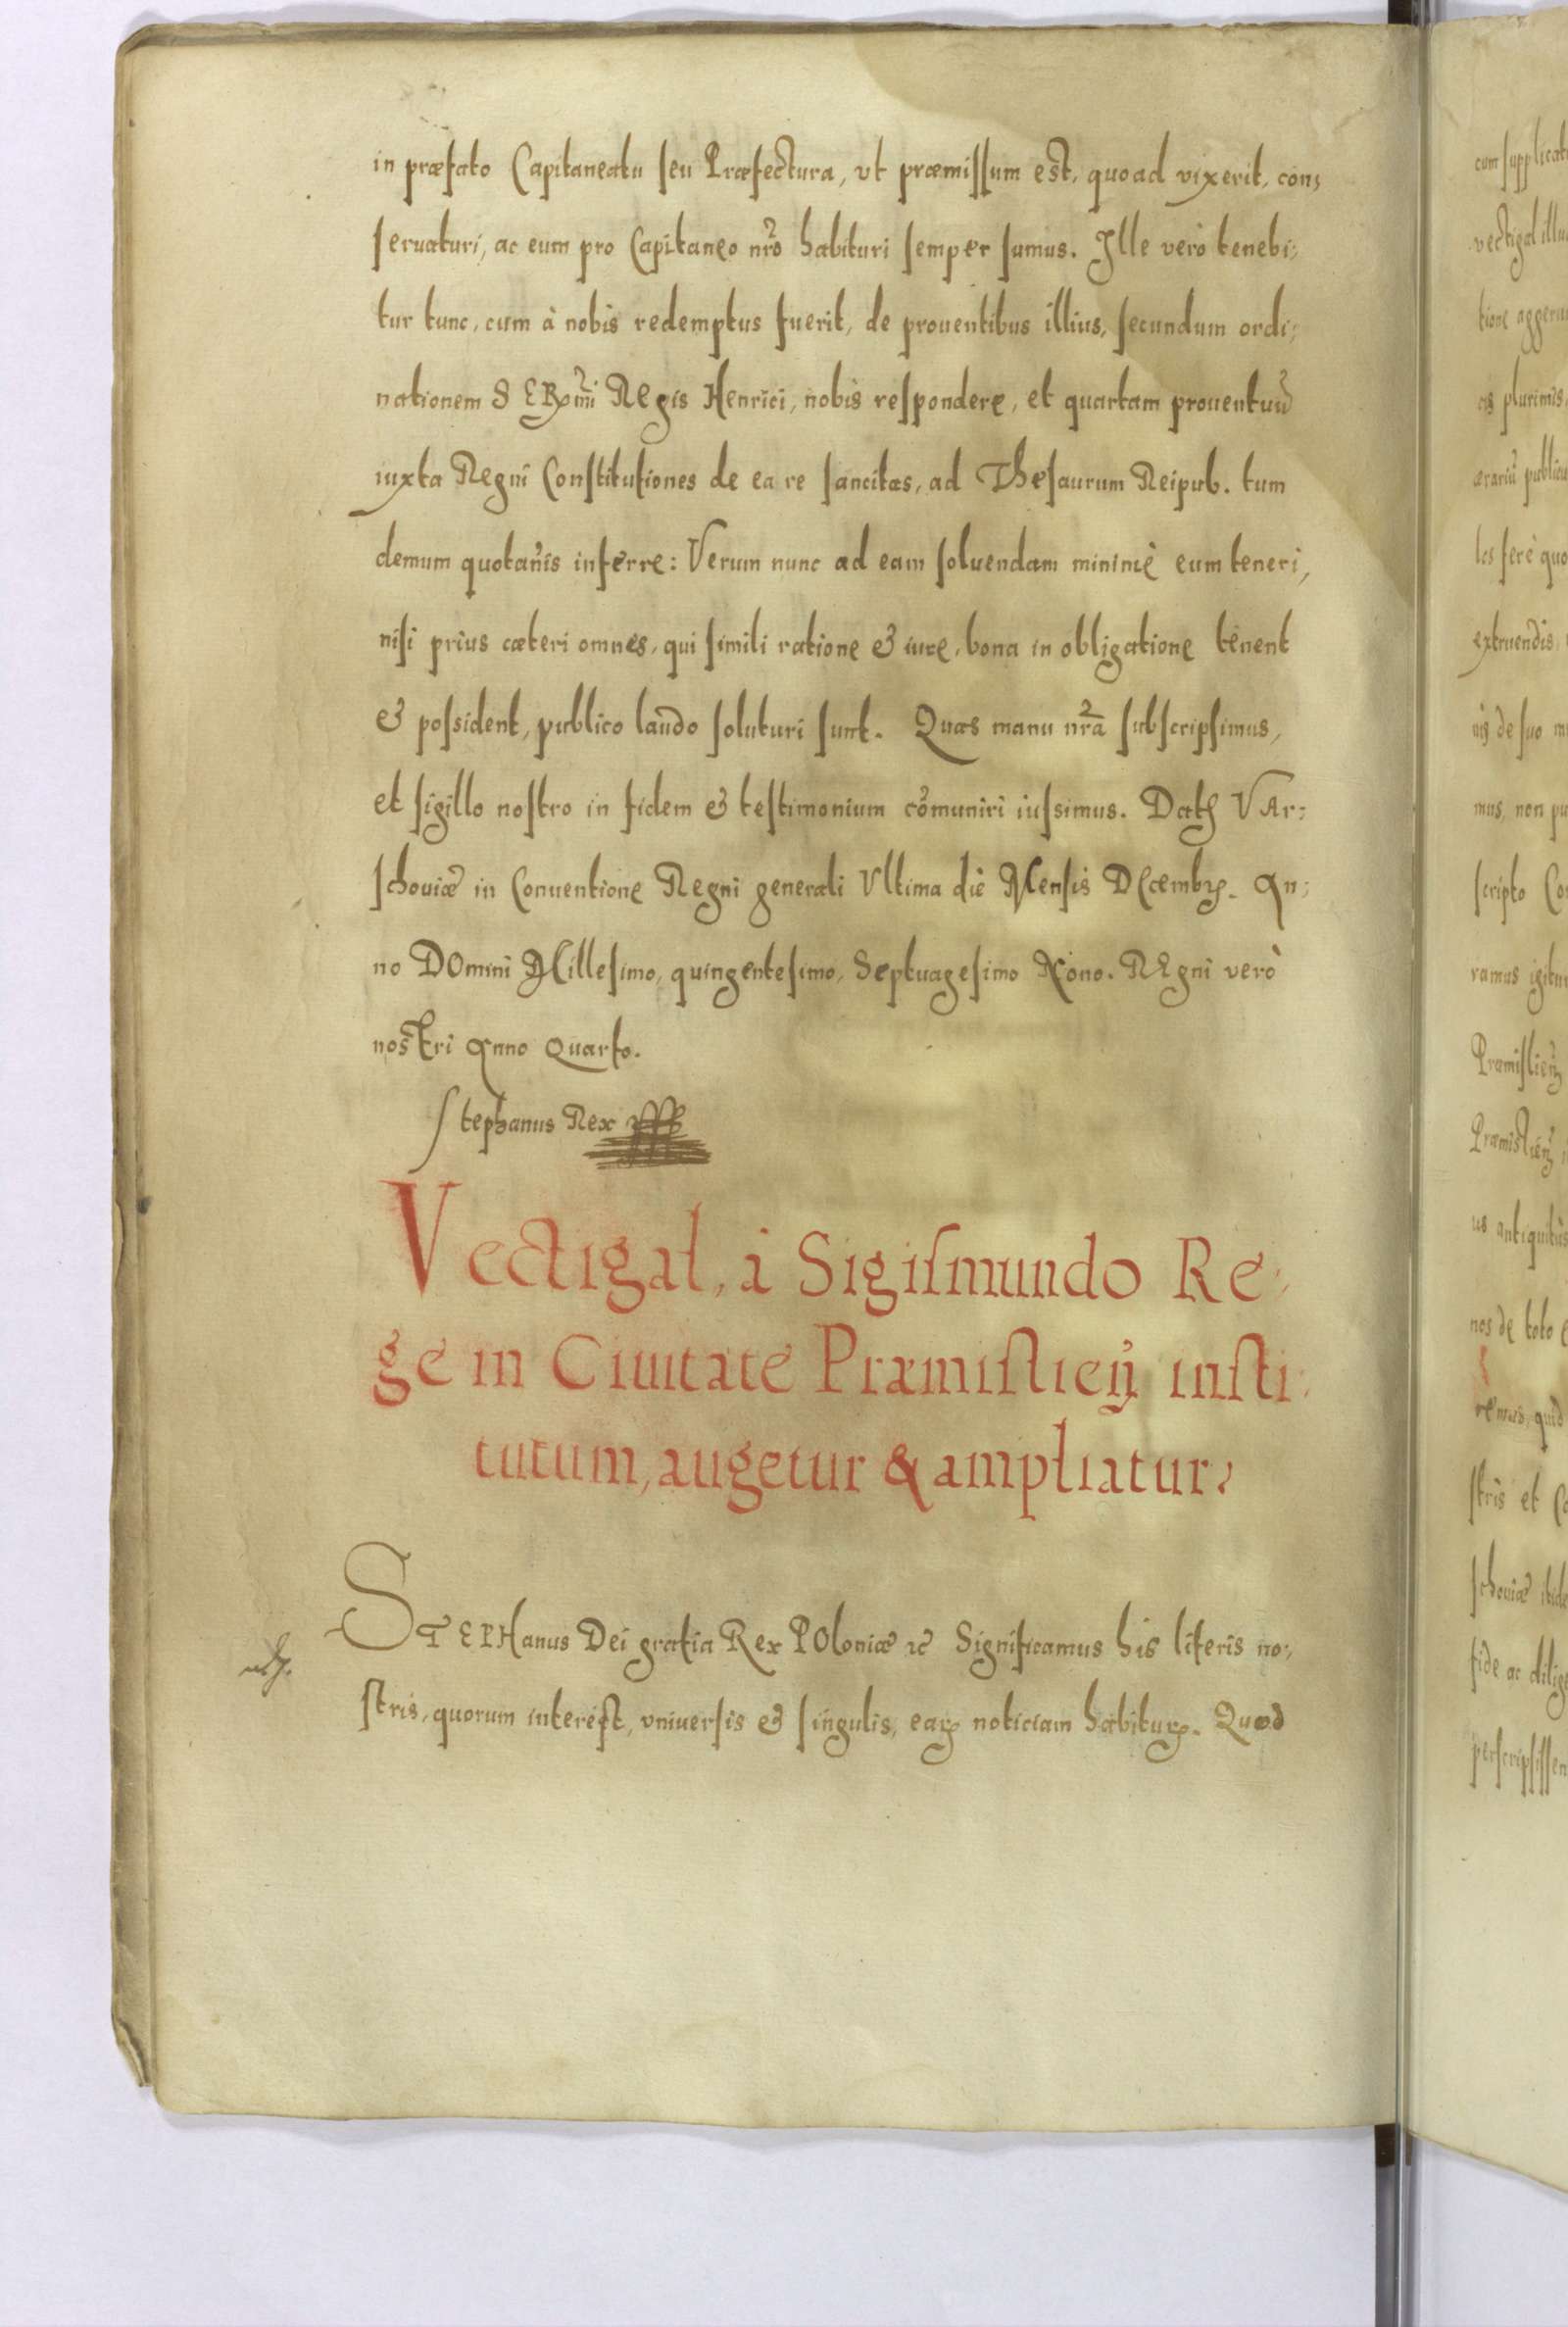 in præfato Capitaneatu seu Præfectura, vt præmissum est, quoad vixerit, con:
seruaturi, ac eum pro Capitaneo nr̃o habituri semper sumus. Ille verò tenebi:
tur tunc, cum à nobis redemptus fuerit, de prouentibus illius, secundum ordi:
nationem Regis Henrici, nobis respondere, et quartam prouentuũ
iuxta Regni Constitutiones de ea re sancitas, ad Thesaurum Reipub. tum
demum quotañis inferre: Verum nunc ad eam soluendam minimè eum teneri,
nisi prius cæteri omnes, qui simili ratione & iure, bona in obligatione tenent
& possident, publico laudo soluturi sunt. Quas manu nr̃a subscripsimus,
et sigillo nostro in fidem & testimonium cõmuniri iussimus. Datꝭ VAr:
schouiæ in Conuentione Regni generali Vltima die Mensis DEcembrꝭ. An:
no DOmini Millesimo, quingentesimo, Septuagesimo Nono. REgni verò
nostri Anno Quarto.
Stephanus Rex
Vectigal, à Sigismundo Re:
ge in Ciuitate Præmislieñ insti:
tutum, augetur & ampliatur.
STEPHanus Dei gratia Rex POloniæ ꝛc Significamus his literis no:
stris, quorum interest, vniuersis & singulis, earꝝ noticiam habiturꝝ. Quod
cum supplicat
vectigal illu
tione aggeru
as plurimis
ærariũ publicu
les ferè quo
extruendis
nij de suo m
mus, non pu
scripto Co
ramus igitur
Præmislieñ
Præmislieñ
us antiquitus
nos de toto
quod
stris et Co
schouiæ itide
fide ac dilige
perscripsissen